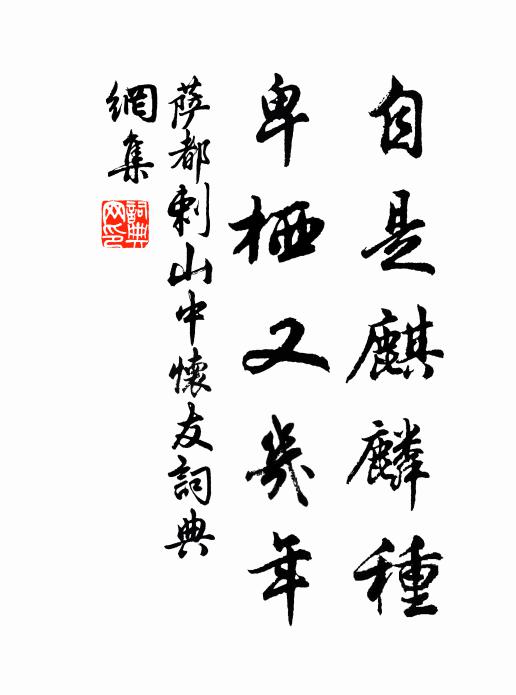 自是麒麟種
卑栖又幾年
萨都剌山中懷友詞典
網集
詞典網印